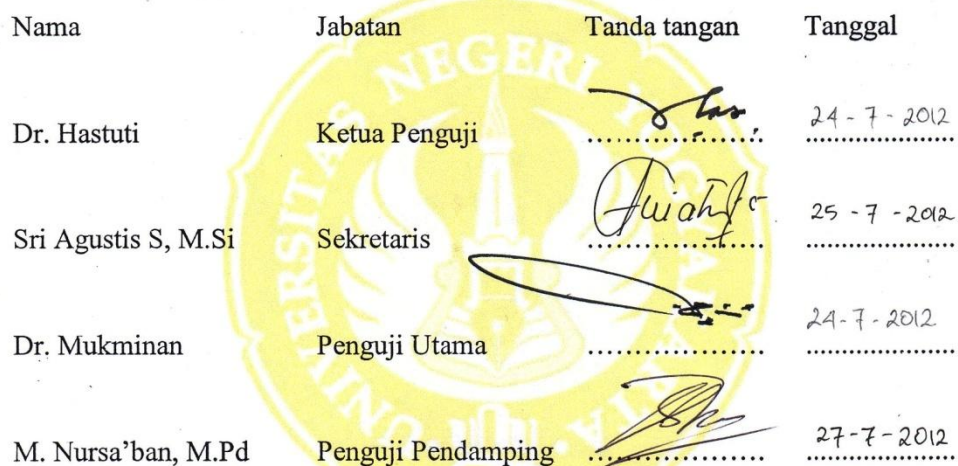 Nama Jabatan Tanda tangan Tanggal
Dr. Hastuti Ketua Penguji 24-7-2012
Sri Agustis S, M.Si Sekretaris 25-7-2012
Dr. Mukminan Penguji Utama 24-7-2012
M. Nursa'ban, M.Pd Penguji Pendamping 27-7-2012
UNIVERSITAS NEGERI YOGYAKARTA